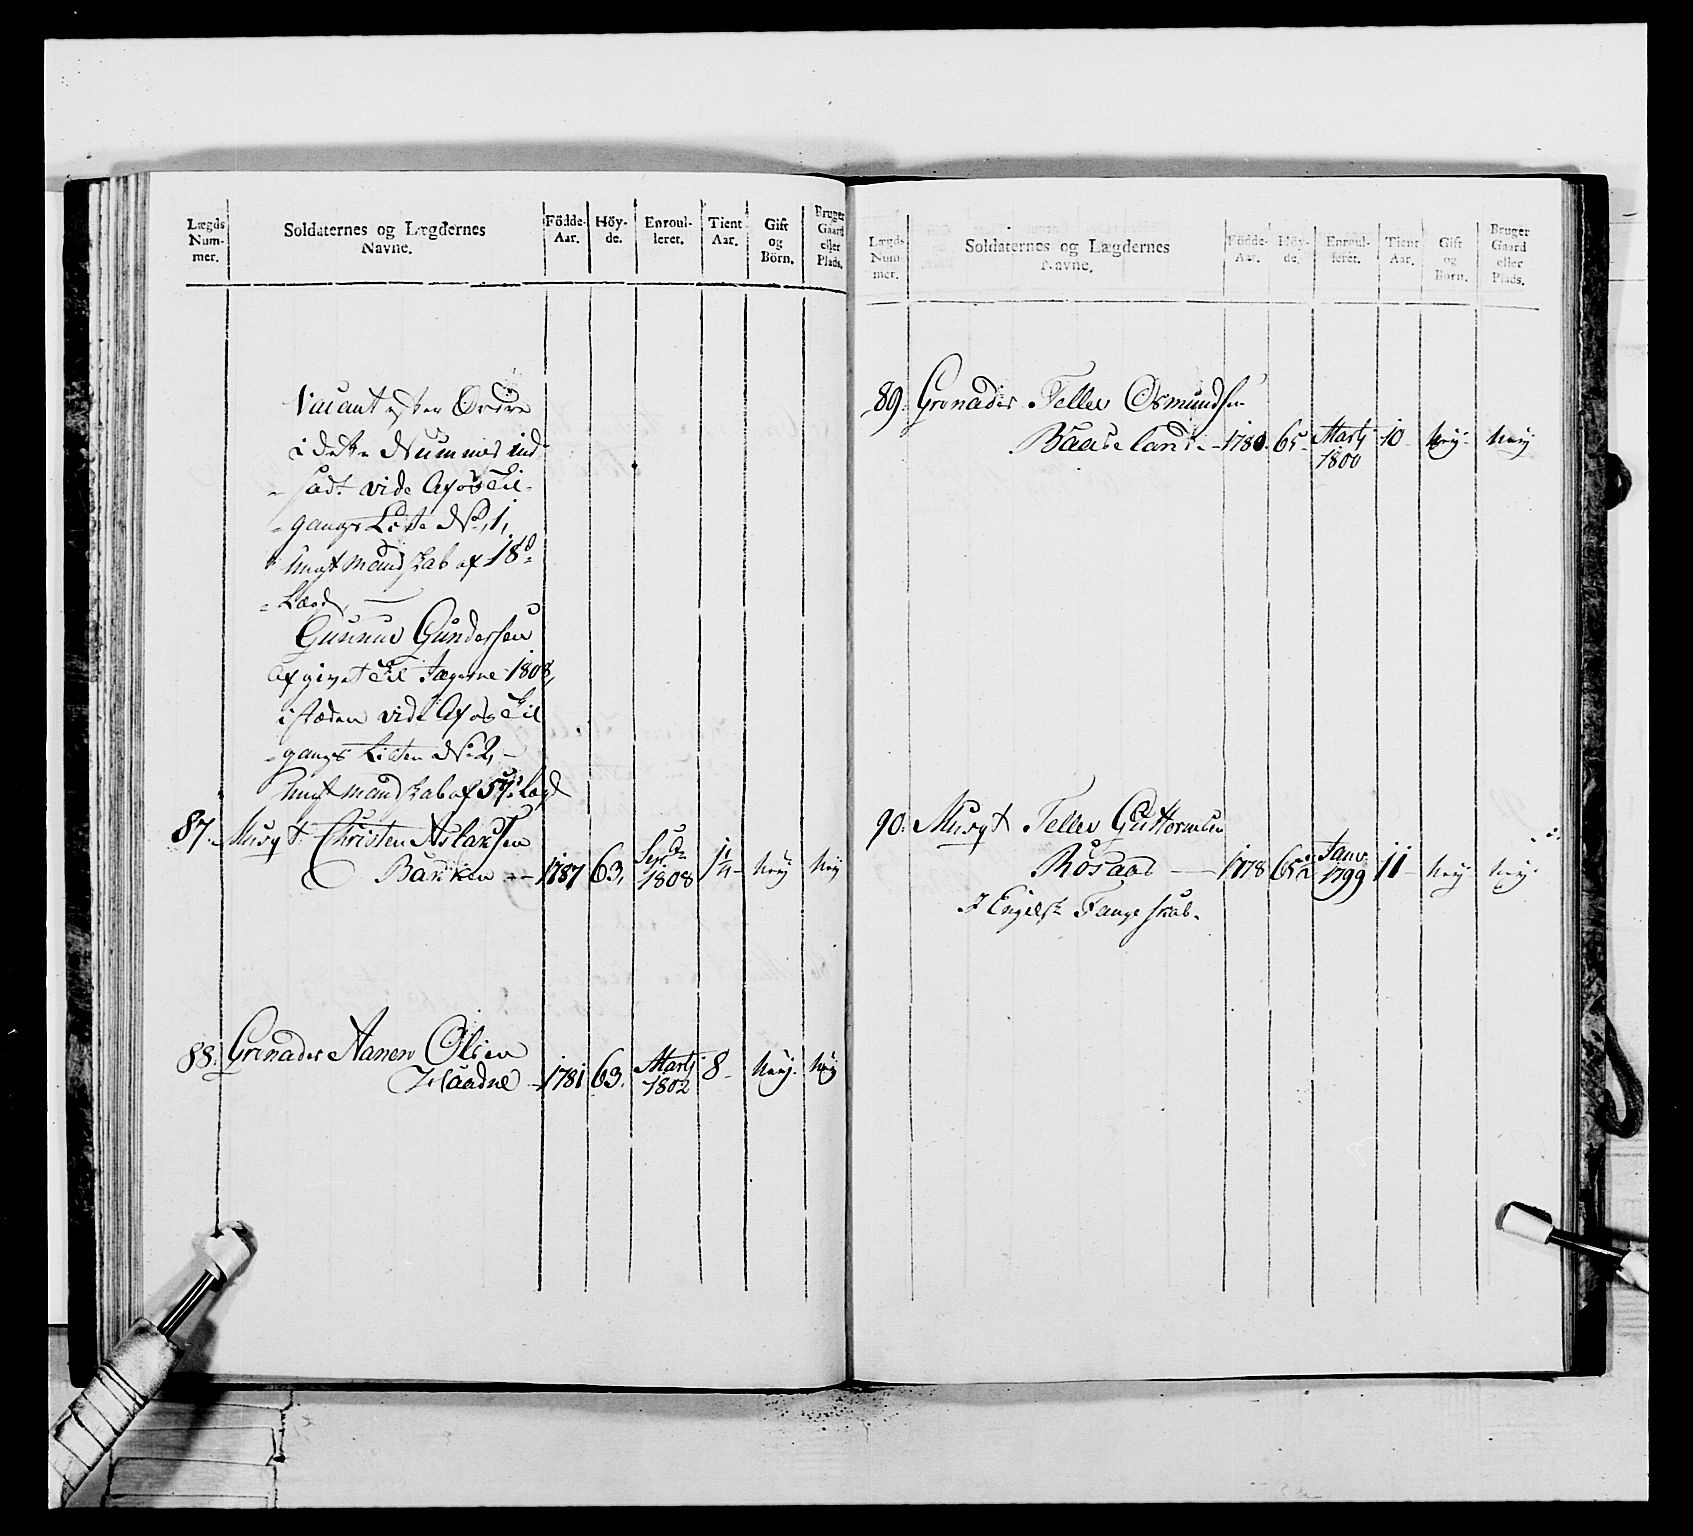 Lægds Num- mer.
Soldaternes og Lægdernes Navne.
Födde- Aar.
Höy- de.
Enroul- leret.
Tient Aar.
Gift og Börn.
Bruger Gaard eller Plads.
Vacant efter Ordre
i dette Nummer ind-
sadt vide Afos Til-
gangs Liste No. 1,
ungt mandskab af 18d
Lægd,
Gunnuv Gundersen
afgivet til Jægerne 1808,
i stæden vide Afos Til
gangs Listen No. 2,
ungt mandskab af 57 Lægd
87. Musqt Christen Aslaksen
Barken - 1787 63, Sept 1808 1 1/4 Neij Neij
88. Grenader Aanen Olsen
Haadne - 1781 63. Martj 1802 8 - Neij. Neij
Lægds Num- mer.
Soldaternes og Lægdernes Navne.
Födde- Aar.
Höy- de.
Enroul- leret.
Tient Aar.
Gift og Börn.
Bruger Gaard eller Plads.
89. Grenader Tellev Osmundsen
Baaseland - 1780. 65. Martj 1800 10 - Neij. Neij
90. Musqt Tellev Guttormsen
Rosaas - 1778 65 1/2 Janv 1799 11 - Neij. Neij.
I Engelsk Fangeskab.